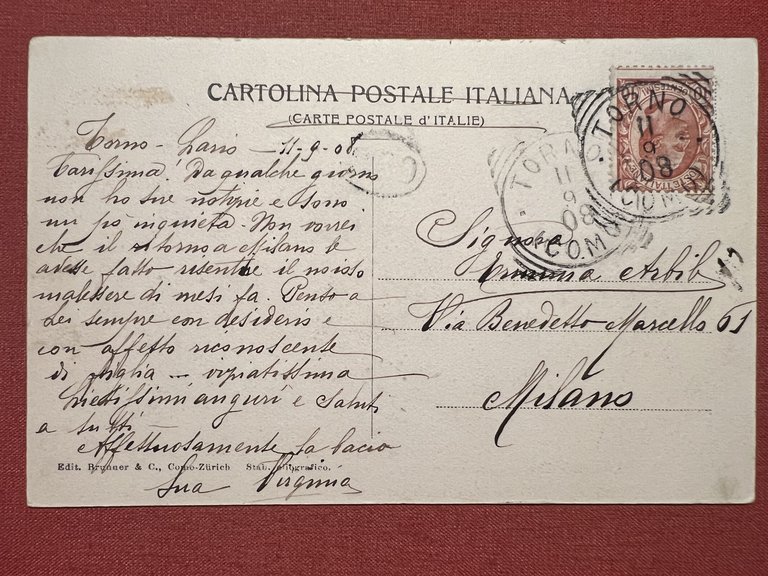 CARTOLINA POSTALE ITALIANA
(CARTE POSTALE d'ITALIE)
Torno - Lario - 11-9-08
Carissima. Da qualche giorno
non ho sue notizie e sono
un pò inquieta. Non vorrei
che il ritorno a Milano le
avesse fatto risentire il noioso
malessere di mesi fa. Penso a
Lei sempre con desiderio e
con affetto riconoscente
di figlia —
Lietissimi auguri e saluti
a tutti
Affettuosamente la bacio
Sua Virginia
Edit. Brunner & C., Como-Zürich Stab. eliografico.
TORNO
11
9
08
(COMO)
TORNO
11
9
08
(COMO)
Signora
Emma Arbib
Via Benedetto Marcello 61
Milano